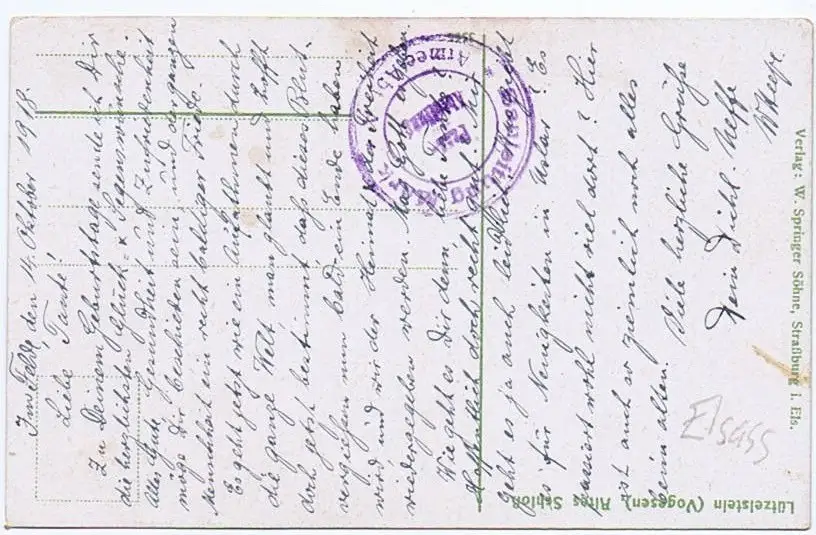 Im Felde, den 14. Oktober 1918.
Liebe Tante!
Zu Deinem Geburtstage sende ich Dir
die herzlichsten Glück- & Segenswünsche.
Alles Gute, Gesundheit und Zufriedenheit
möge Dir beschieden sein und der ganzen
Menschheit ein recht baldiger Friede.
Es geht jetzt wie ein Aufathmen durch
die ganze Welt, man glaubt und hofft
doch jetzt bestimmt, daß dieses Blut-
vergießen nun bald ein Ende haben
wird und wir der Heimat & der Freiheit
wiedergegeben werden. Mag Gott
Wie geht es Dir denn, liebe Tante?
Hoffentlich doch recht gut. Mir
geht es ja auch leidlich. Was gibt
es für Neuigkeiten in Uslar? Es
passiert wohl nicht viel dort? Hier
ist auch so ziemlich noch alles
beim alten.
Viele herzliche Grüße
Dein Dichl. Neffe
Armee
Lützelstein (Vogesen), Altes Schloß
Verlag: W. Springer Söhne, Straßburg i. Els.
Elsass